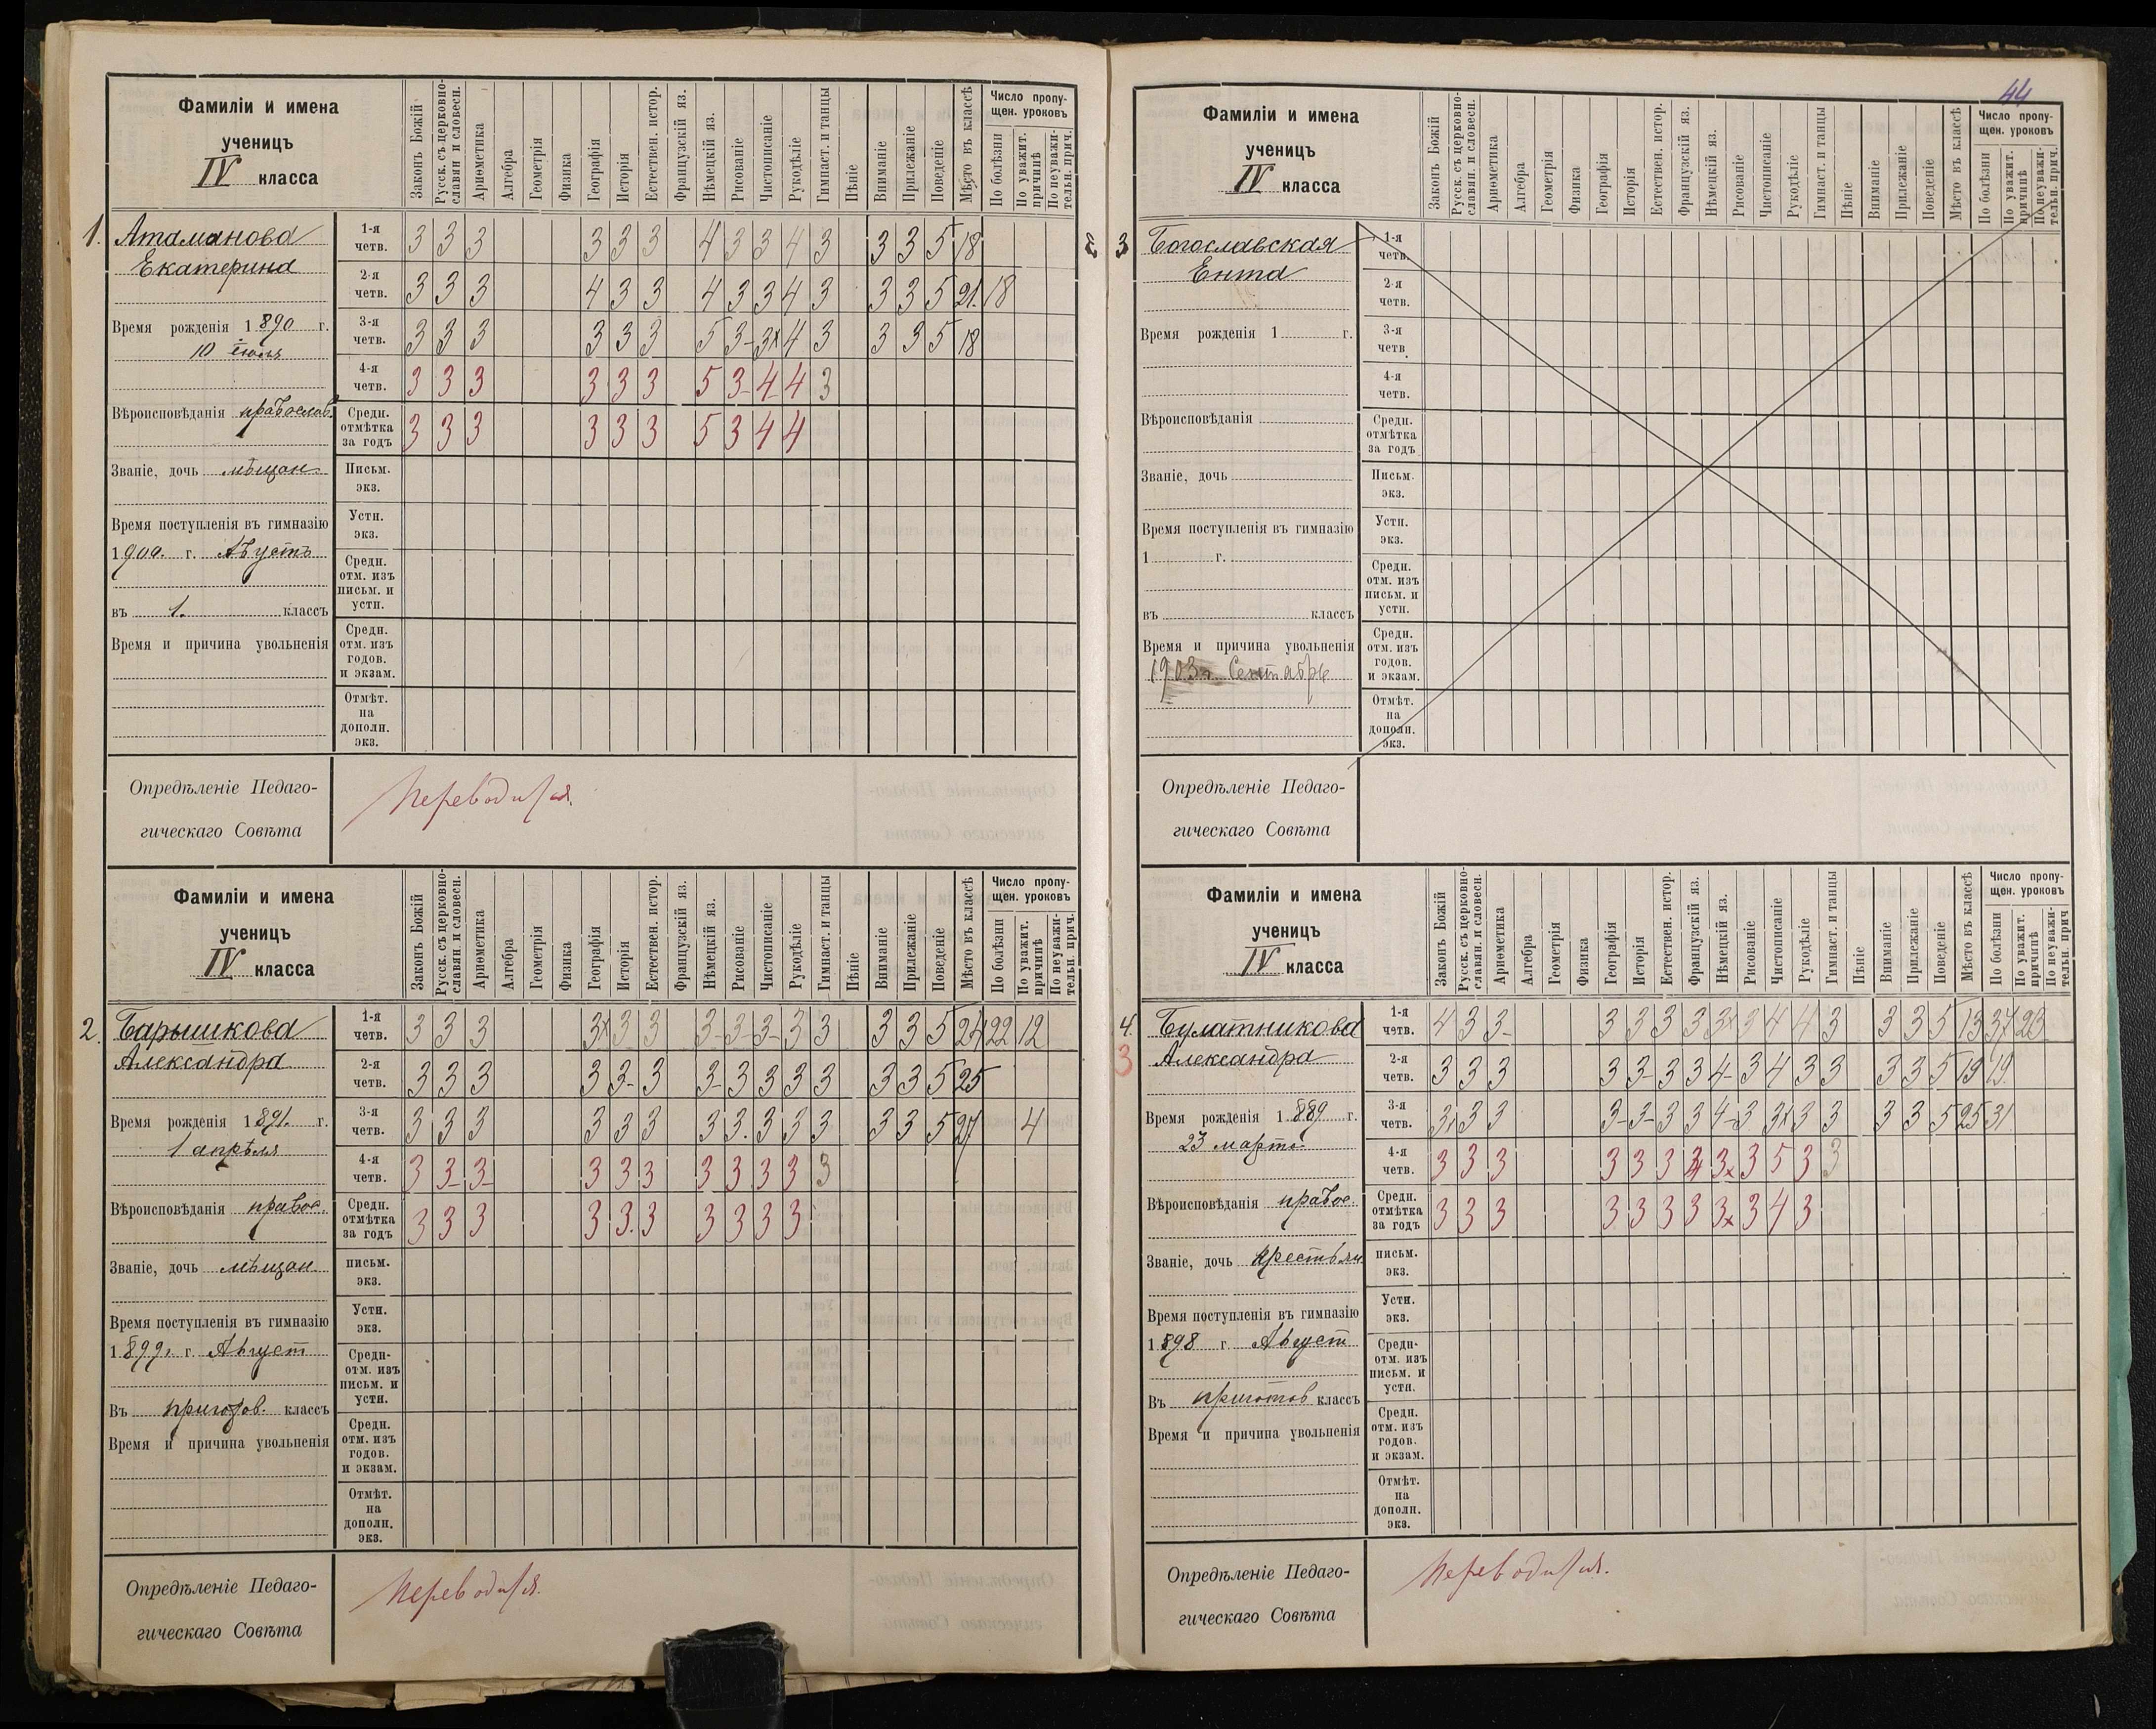 44
Фамиліи и имена
ученицъ
IV класса
Законъ Божій
Русск. съ церковно-
славян. и словесн.
Ариѳметика
Алгебра
Геометрія
Физика
Географія
Исторія
Естествен. истор.
Французскій яз.
Нѣмецкій яз.
Рисованіе
Чистописаніе
Рукодѣліе
Гимнаст. и танцы
Пѣніе
Вниманіе
Прилежаніе
Поведеніе
Мѣсто въ классѣ
Число пропу-
щен. уроковъ
По болѣзни
По уважит.
причинѣ
По неуважи-
тельн. прич.
1. Атаманова
Екатерина
Время рожденія 1890 г.
10 іюля
Вѣроисповѣданія православ.
Званіе, дочь мѣщан.
Время поступленія въ гимназію
1900. г. Августъ
въ 1. классъ
Время и причина увольненія
1-я четв. 3 3 3 3 3 3 4 3 3 4 3 3 3 5 18
2-я четв. 3 3 3 4 3 3 4 3 3 4 3 3 3 5 21. 18
3-я четв. 3 3 3 3 3 3 5 3- 3х 4 3 3 3 5 18
4-я четв. 3 3 3 3 3 3 5 3- 4- 4 3
Средн. отмѣтка за годъ 3 3 3 3 3 3 5 3 4 4
Письм. экз.
Устн. экз.
Средн. отм. изъ письм. и устн.
Средн. отм. изъ годов. и экзам.
Отмѣт. на дополн. экз.
Опредѣленіе Педаго-
гическаго Совѣта
Переводится.
Фамиліи и имена
ученицъ
IV класса
Законъ Божій
Русск. съ церковно-
славян. и словесн.
Ариѳметика
Алгебра
Геометрія
Физика
Географія
Исторія
Естествен. истор.
Французскій яз.
Нѣмецкій яз.
Рисованіе
Чистописаніе
Рукодѣліе
Гимнаст. и танцы
Пѣніе
Вниманіе
Прилежаніе
Поведеніе
Мѣсто въ классѣ
Число пропу-
щен. уроковъ
По болѣзни
По уважит.
причинѣ
По неуважи-
тельн. прич.
2. Барышкова
Александра
Время рожденія 1891. г.
1 апрѣля
Вѣроисповѣданія правос.
Званіе, дочь мѣщан.
Время поступленія въ гимназію
1899. г. Август
Въ пригот̄ов. классъ
Время и причина увольненія
1-я четв. 3 3 3 3х 3 3 3- 3- 3- 3 3 3 3 5 24 22 12
2-я четв. 3 3 3 3 3- 3 3- 3 3 3 3 3 3 5 25
3-я четв. 3 3 3 3 3 3 3 3. 3 3 3 3 3 5 27 4
4-я четв. 3 3- 3- 3 3 3 3 3 3 3 3
Средн. отмѣтка за годъ 3 3 3 3 3. 3 3 3 3 3
письм. экз.
Устн. экз.
Средн- отм. изъ письм. и устн.
Средн. отм. изъ годов. и экзам.
Отмѣт. на дополн. экз.
Опредѣленіе Педаго-
гическаго Совѣта
Переводится.
Фамиліи и имена
ученицъ
IV класса
Законъ Божій
Русск. съ церковно-
славян. и словесн.
Ариѳметика
Алгебра
Геометрія
Физика
Географія
Исторія
Естествен. истор.
Французскій яз.
Нѣмецкій яз.
Рисованіе
Чистописаніе
Рукодѣліе
Гимнаст. и танцы
Пѣніе
Вниманіе
Прилежаніе
Поведеніе
Мѣсто въ классѣ
Число пропу-
щен. уроковъ
По болѣзни
По уважит.
причинѣ
По неуважи-
тельн. прич.
3 Богославская
Ента
Время рожденія 1 г.
Вѣроисповѣданія
Званіе, дочь
Время поступленія въ гимназію
1 г.
въ классъ
Время и причина увольненія
1903г. Сентабрь
1-я четв.
2-я четв.
3-я четв.
4-я четв.
Средн. отмѣтка за годъ
Письм. экз.
Устн. экз.
Средн. отм. изъ письм. и устн.
Средн. отм. изъ годов. и экзам.
Отмѣт. на дополн. экз.
Опредѣленіе Педаго-
гическаго Совѣта
Фамиліи и имена
ученицъ
IV класса
Законъ Божій
Русск. съ церковно-
славян. и словесн.
Ариѳметика
Алгебра
Геометрія
Физика
Географія
Исторія
Естествен. истор.
Французскій яз.
Нѣмецкій яз.
Рисованіе
Чистописаніе
Рукодѣліе
Гимнаст. и танцы
Пѣніе
Вниманіе
Прилежаніе
Поведеніе
Мѣсто въ классѣ
Число пропу-
щен. уроковъ
По болѣзни
По уважит.
причинѣ
По неуважи-
тельн. прич
4. Булатникова
3 Александра
Время рожденія 1889 г.
23 марта
Вѣроисповѣданія правос.
Званіе, дочь крестьян.
Время поступленія въ гимназію
1898 г. Август
Въ приготов классъ
Время и причина увольненія
1-я четв. 4 3 3- 3 3 3 3 3х 3 4 4 3 3 3 5 13 37 23
2-я четв. 3 3 3 3 3- 3 3 4- 3 4 3 3 3 3 5 19 19.
3-я четв. 3х 3 3 3- 3- 3 3 4- 3 3х 3 3 3 3 5 25 31
4-я четв. 3 3 3 3 3 3 3 3х 3 5 3 3
Средн. отмѣтка за годъ 3 3 3 3 3 3 3 3х 3 4 3
письм. экз.
Устн. экз.
Средн- отм. изъ письм. и устн.
Средн. отм. изъ годов. и экзам.
Отмѣт. на дополн. экз.
Опредѣленіе Педаго-
гическаго Совѣта
Переводится.